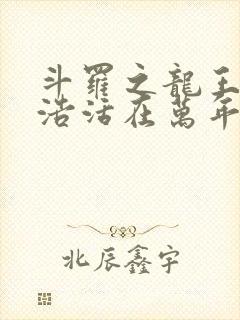 斗羅之龍王
浩活在萬年
北辰鑫宇